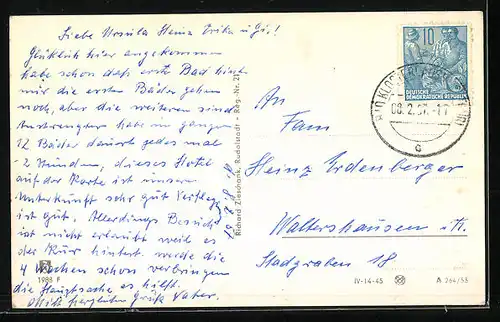 Liebe Ursula Heinz Erika u. Gi.!
Glücklich hier angekommen
habe schon daß erste Bad hinter
mir die ersten Bäder gehen
noch, aber die weiteren sind
Anstrengter habe im ganzen
12 Bäder dauert jedes mal
2 Stunden, dieses Hotel
auf der Karte ist unsere
Unterkunft sehr gut Verpfleg
ist gut. Allerdings Besuch
ist nicht erlaubt weil es
der Kur hintert. werde die
4 Wochen schon verbringen
die Hauptsache es hilft.
Mit herzlichen Grüß Vater.
1988 F
Richard Zieschank, Rudolstadt Reg.-Nr.
10
DEUTSCHE
DEMOKRATISCHE REPUBLIK
BAD KLOSTERLAUSNITZ
08.2.57.
c
An
Fam
Heinz Erdenberger
Waltershausen i. Th.
Stadtgraben 18
IV-14-45
A 264/55